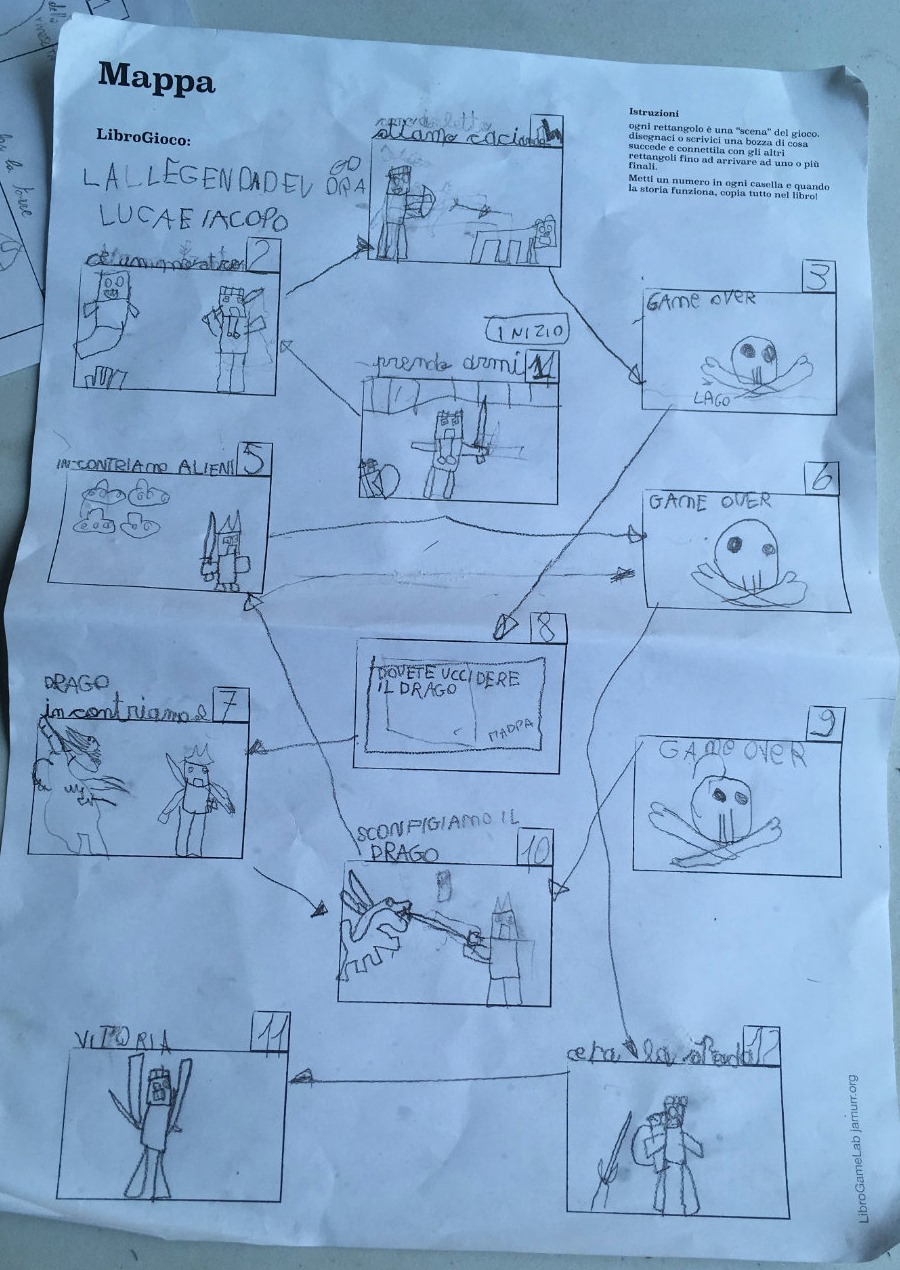 Mappa
LibroGioco:
LALLEGENDADEL DRAGO
LUCAEIACOPO
Istruzioni
ogni rettangolo è una "scena" del gioco.
disegnaci o scrivici una bozza di cosa
succede e connettila con gli altri
rettangoli fino ad arrivare ad uno o più
finali.
Metti un numero in ogni casella e quando
la storia funziona, copia tutto nel libro!
stiamo
2
3
GAME OVER
LAGO
INIZIO
prendo armi
INCONTRIAMO ALIENI 5
6
GAME OVER
8
DOVETE UCCIDERE
IL DRAGO
MAPPA
DRAGO
incontriamo il 7
9
GAME OVER
SCONFIGIAMO IL
DRAGO 10
VITORIA 11
cera la spada 12
LibroGameLab jamurr.org